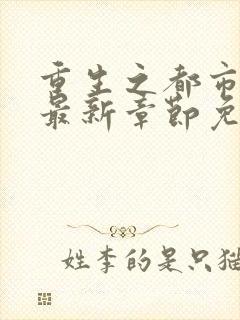 重生之都市
最新章节免
姓李的是只猫